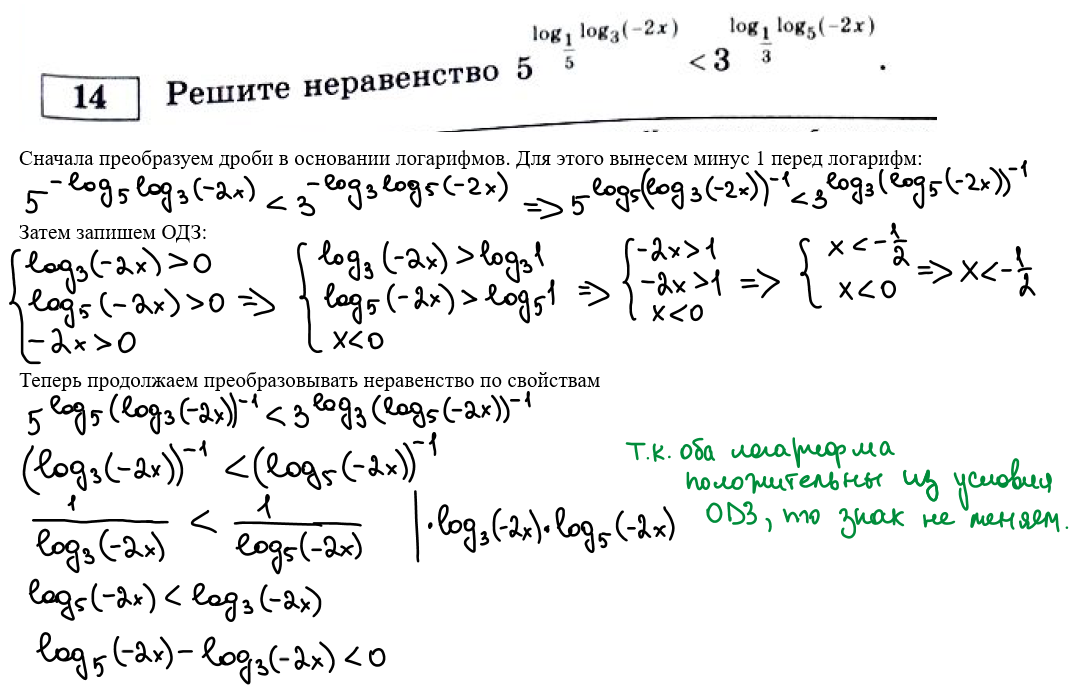 14 Решите неравенство 5^(log_(1/5) log_3(−2x)) < 3^(log_(1/3) log_5(−2x)).
Сначала преобразуем дроби в основании логарифмов. Для этого вынесем минус 1 перед логарифм:
5^(−log_5 log_3(−2x)) < 3^(−log_3 log_5(−2x)) => 5^(log_5(log_3(−2x))^(−1)) < 3^(log_3(log_5(−2x))^(−1))
Затем запишем ОДЗ:
{ log_3(−2x) > 0 { log_3(−2x) > log_3 1 { −2x > 1 { x < −1/2
log_5(−2x) > 0 => log_5(−2x) > log_5 1 => −2x > 1 => x < 0 => x < −1/2
−2x > 0 x < 0 x < 0
Теперь продолжаем преобразовывать неравенство по свойствам
5^(log_5(log_3(−2x))^(−1)) < 3^(log_3(log_5(−2x))^(−1))
(log_3(−2x))^(−1) < (log_5(−2x))^(−1)
1/log_3(−2x) < 1/log_5(−2x) | · log_3(−2x) · log_5(−2x)
т.к. оба логарифма
положительны из условия
ОДЗ, то знак не меняем.
log_5(−2x) < log_3(−2x)
log_5(−2x) − log_3(−2x) < 0